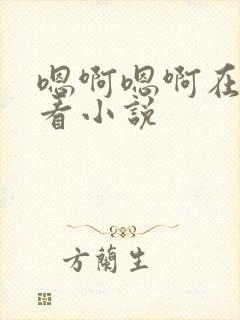 嗯啊嗯啊在
看小說
方蘭生